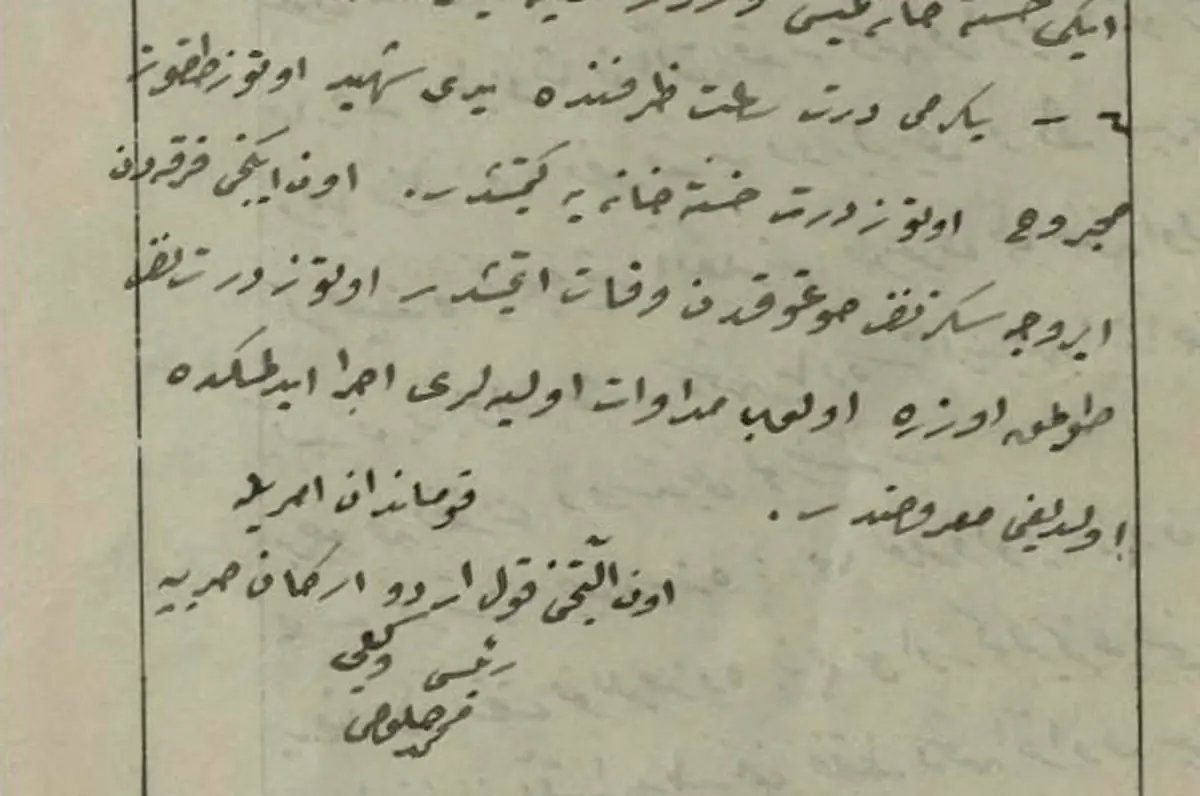 ایکی خسته خانه
٤ – یکرمی درت ساعت ظرفنده یدی شهید اوتوز طقوز
مجروح اوتوز درت خسته خانه یه کیتمشدر. اون ایکنجی فرقه دن
سکز نفر صوغوقدن وفات ایتمشدر اوتوز درت نفر
طوكمق اوزره اولوب مداوات اولیه لری اجرا ایدلمکده
اولدیغی معروضدر.
قوماندان امریله
اون آلتنجی قول اردو ارکان حربیه
رئیس وکیلی